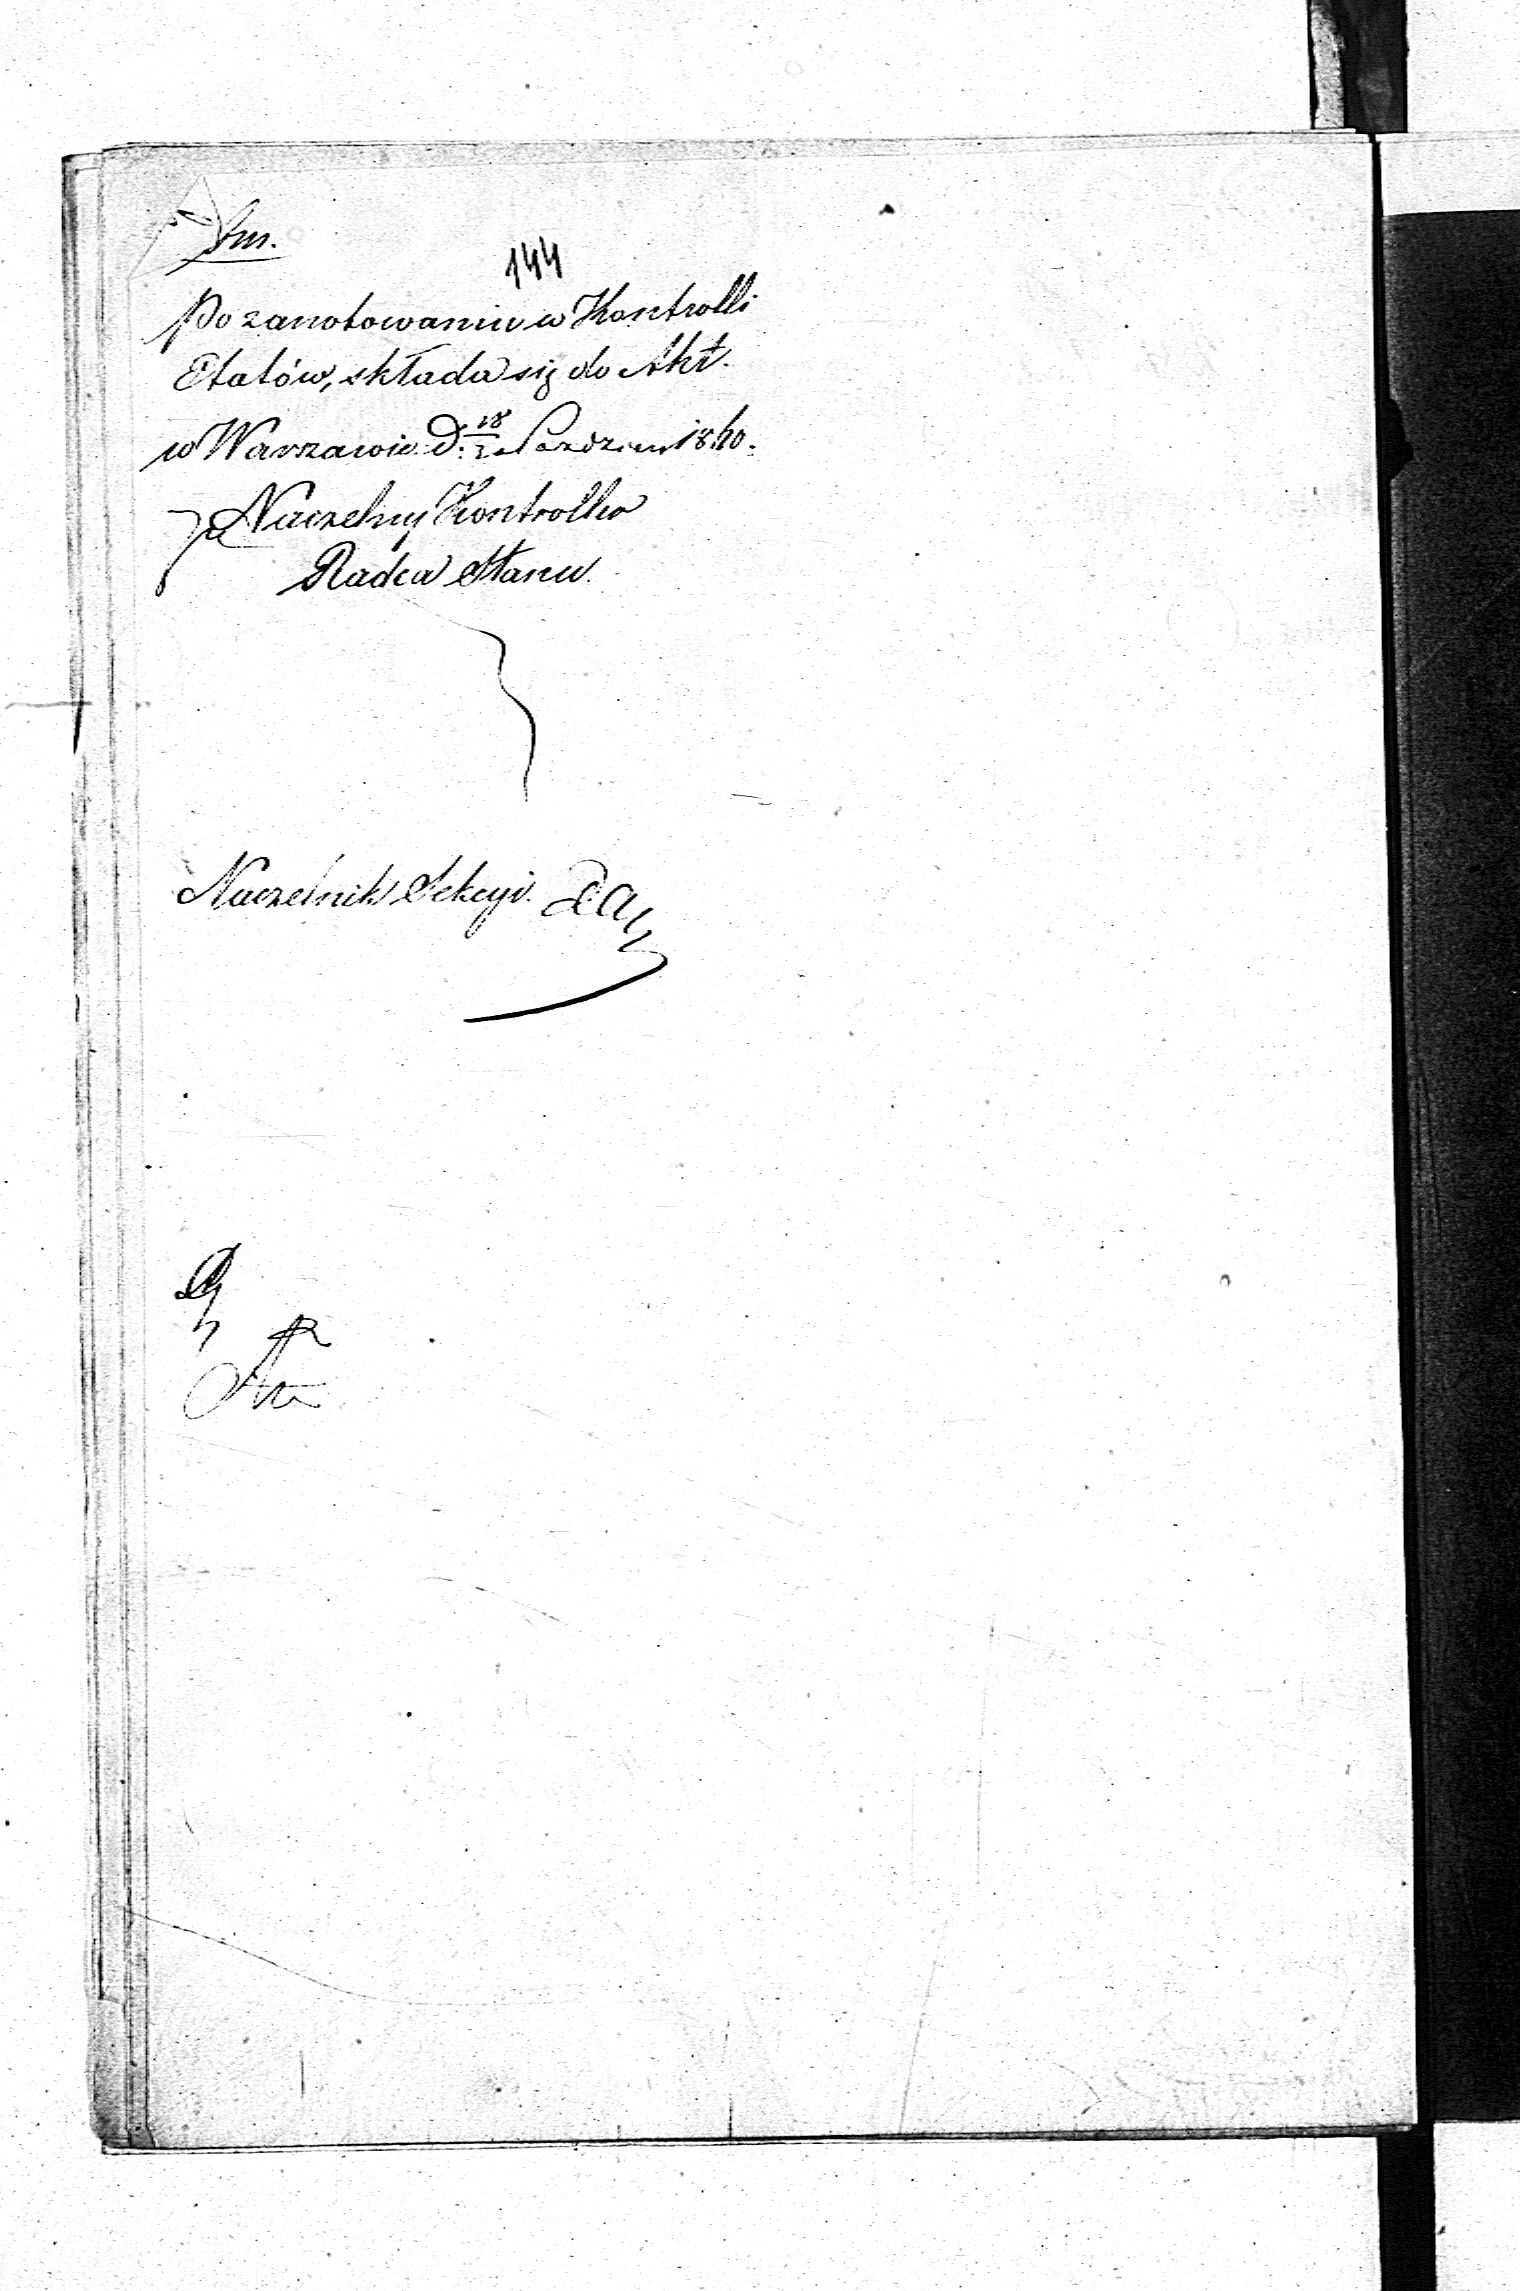 144
Po zanotowaniu w Kontrolli
Etatów, składa się do Akt.
w Warszawie D. 18 Paździer 1840.
Naczelny Kontroller
Radca Stanu.
Naczelnik Sekcyi.